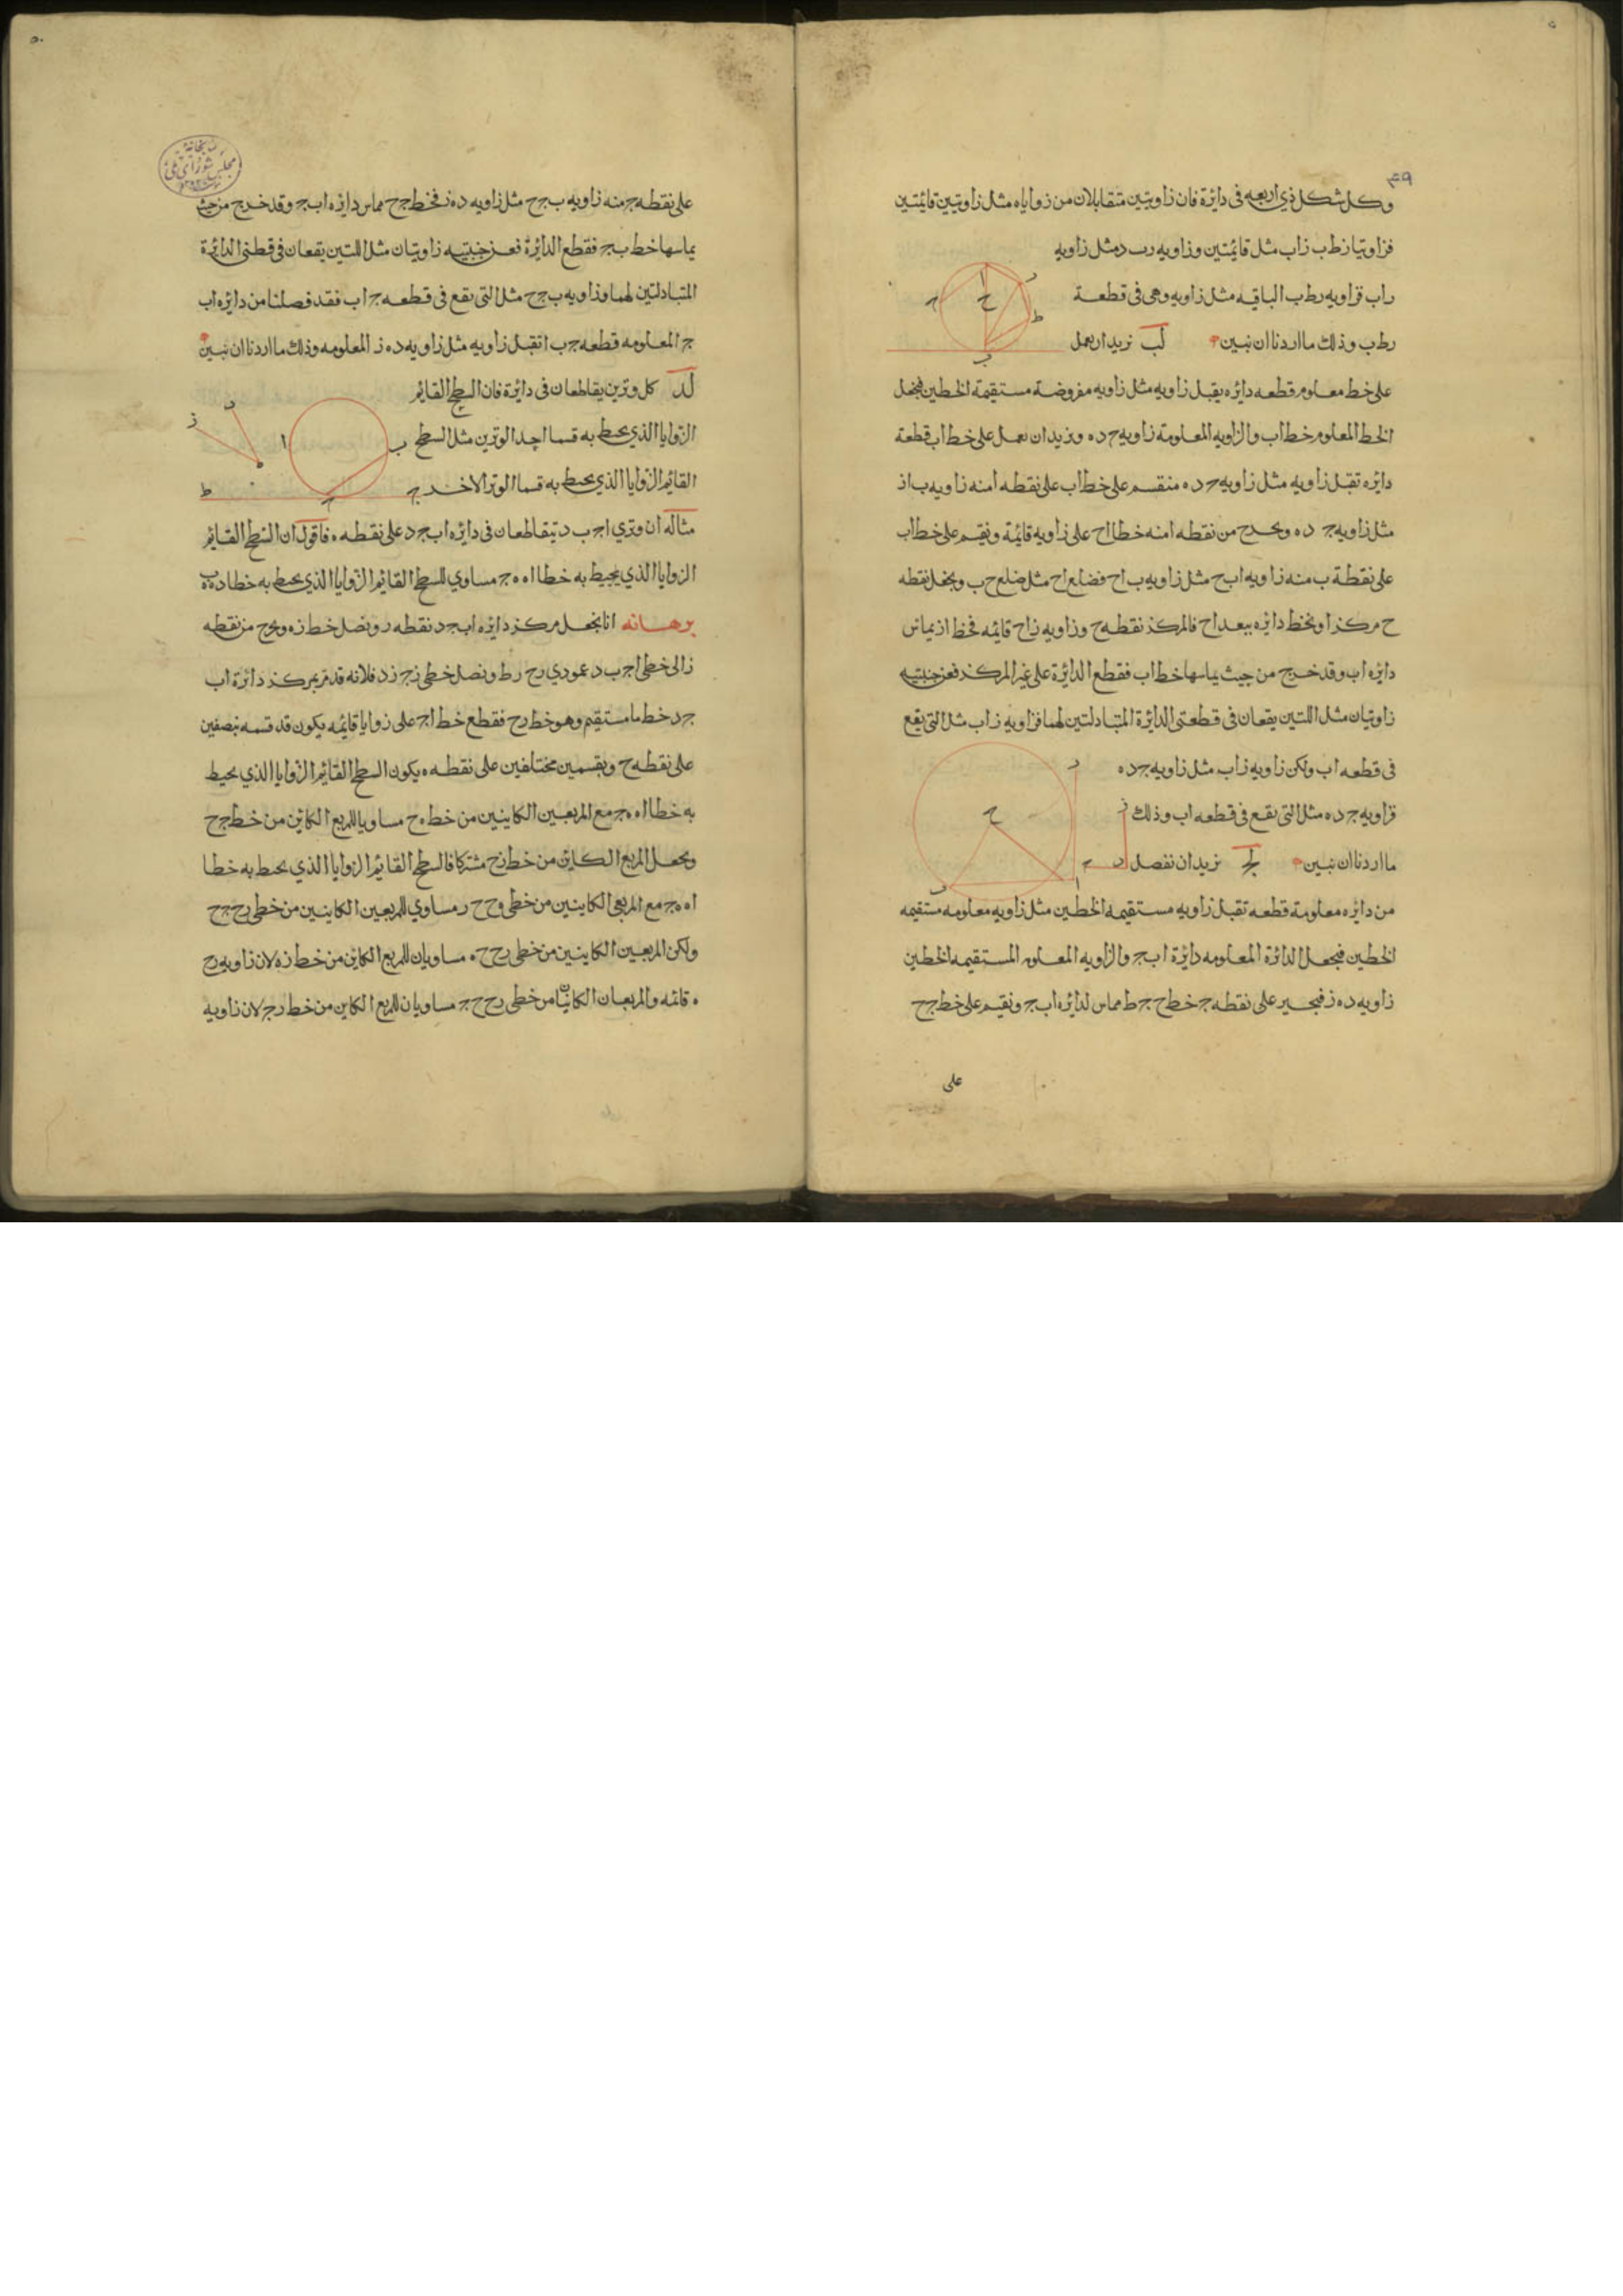 ٤٩
وكل شكل ذي اربعه فى دائرة فان زاويتين متقابلان من زواياه مثل زاويتين قايمتين
فزاويتا زط ب زاب مثل قائمتين وزاويه رب د مثل زاويه
راب فزاويه رط ب الباقيه مثل زاويه وهى فى قطعة
رط ب وذلك ما اردنا ان نبين لب نريد ان نعمل
على خط معلوم قطعه دايره يقبل زاويه مثل زاويه مفروضة مستقيمة الخطين فنجعل
الخط المعلوم خط اب والزاويه المعلومة زاويه ح د ه ونريد ان نعمل على خط اب قطعة
دايره تقبل زاويه مثل زاويه ح د ه منقسم على خط اب على نقطه ا منه زاويه ب ا ز
مثل زاويه ج د ه ونخرج من نقطه ا منه خطا اح على زاويه قايمة ونقيم على خط اب
على نقطة ب منه زاويه اب ح مثل زاويه ب اح فضلع اح مثل ضلع ح ب ونجعل نقطه
ح مركزا ونخط دايره ببعد اح فالمركز نقطه ح وزاويه زاح قائمه فخط از يماس
دايره اب وقد خرج من حيث يماسها خط اب فقطع الدايرة على غير المركز فعن جنبتيه
زاويتان مثل اللتين يقعان فى قطعتى الدايرة المتبادلتين لهما فزاويه زاب مثل التى يقع
فى قطعه اب ولكن زاويه زاب مثل زاويه ج د ه
فزاويه ج د ه مثل التى تقع فى قطعه اب وذلك
ما اردنا ان نبين لج نريد ان نفصل
من دايره معلومة قطعه تقبل زاويه مستقيمه الخطين مثل زاويه معلومه مستقيمه
الخطين فنجعل الدائرة المعلومه دايرة اب ج والزاويه المعلومه المستقيمه الخطين
زاويه د ه ز فنجيز على نقطه ج خط ح ج ط مماس لدايره اب ج ونقيم على خط ج ح
على
على نقطه ج منه زاويه ب ج ح مثل زاويه د ه ز فخط ج ح مماس دايره اب ج وقد خرج من حيث
يماسها خط ب ج فقطع الدائرة فعن جنبتيه زاويتان مثل اللتين يقعان فى قطعتى الدائرة
المتبادلتين لهما وزاويه ب ج ح مثل التى تقع فى قطعه ج اب فقد فصلنا من دايره اب
ج المعلومه قطعه ج ب ا تقبل زاويه مثل زاويه د ه ز المعلومه وذلك ما اردنا ان نبين
لد كل وترين يقاطعان فى دايرة فان السطح القايم
الزوايا الذي يحيط به قسما احد الوترين مثل السطح
القايم الزوايا الذي يحيط به قسما الوتر الاخر
مثاله ان وتري اج ب د يتقاطعان فى دايره اب ج د على نقطه ه فاقول ان السطح القايم
الزوايا الذي يحيط به خطا اه ه ج مساوي للسطح القايم الزوايا الذي يحيط به خطا د ه ه ب
برهانه انا نجعل مركز دايره اب ج د نقطه ر ونصل خط زه ونخرج من نقطه
ز الى خطى اج ب د عمودي رح رط ونصل خطى زج زد فلانه قد مر بمركز دائرة اب
ج د خط ما مستقيم وهو خط رح فقطع خط اج على زوايا قايمه يكون قد قسمه بنصفين
على نقطه ح وبقسمين مختلفين على نقطه ه يكون السطح القايم الزوايا الذي يحيط
به خطا اه ه ج مع المربعين الكاينين من خط ه ح مساويا للمربع الكاين من خط ج ح
ونجعل المربع الكاين من خط زح مشتركا فالسطح القايم الزوايا الذي يحيط به خطا
اه ه ج مع المربعى الكاينين من خطى ه ح ح ر مساوي للمربعين الكاينين من خطى رح ح ج
ولكن المربعين الكاينين من خطى رح ح ه مساويان للمربع الكاين من خط زه لان زاويه رح
ه قائمه والمربعان الكاينان من خطى رح ح ج مساويان للمربع الكاين من خط رج لان زاويه